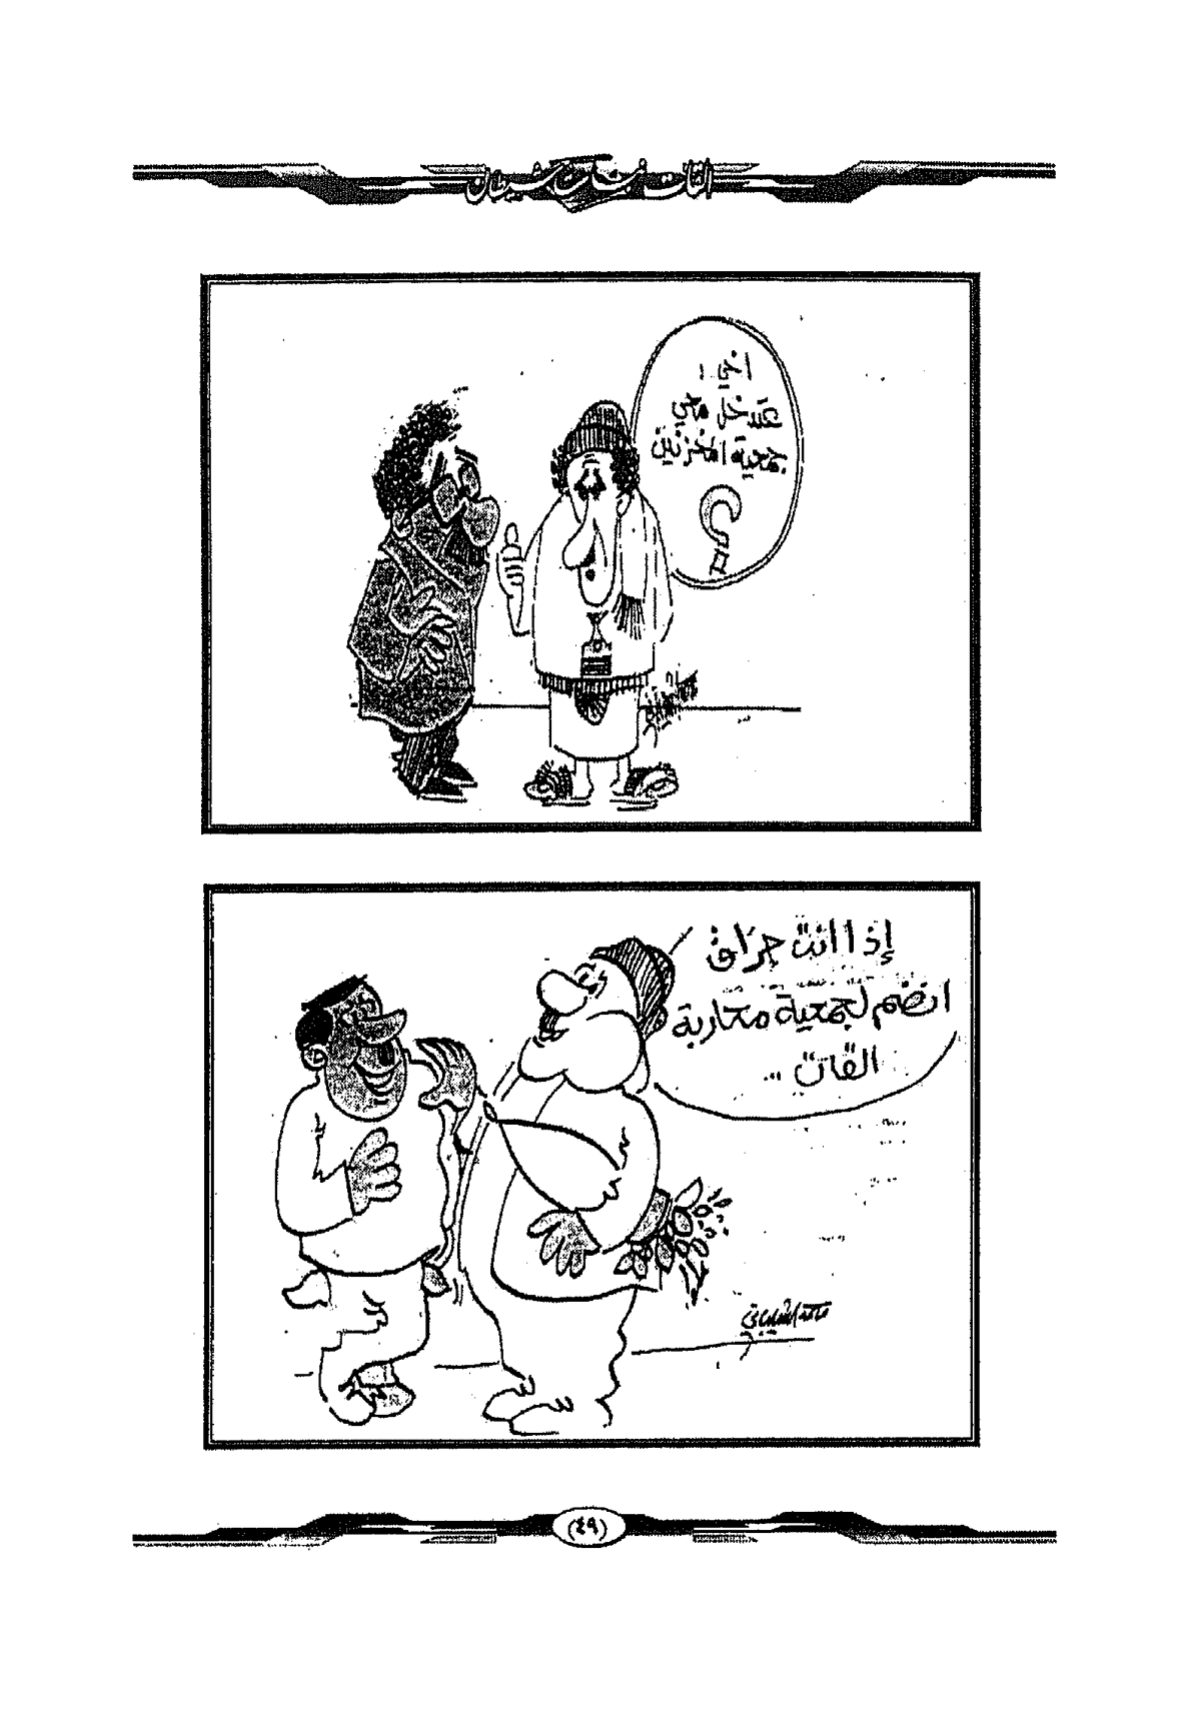 القات
أخي -
عتدخل معي
جمعية المخزنين
؟
إذا انت جراف
انضم لجمعية محاربة
القات ...
(٤٩)